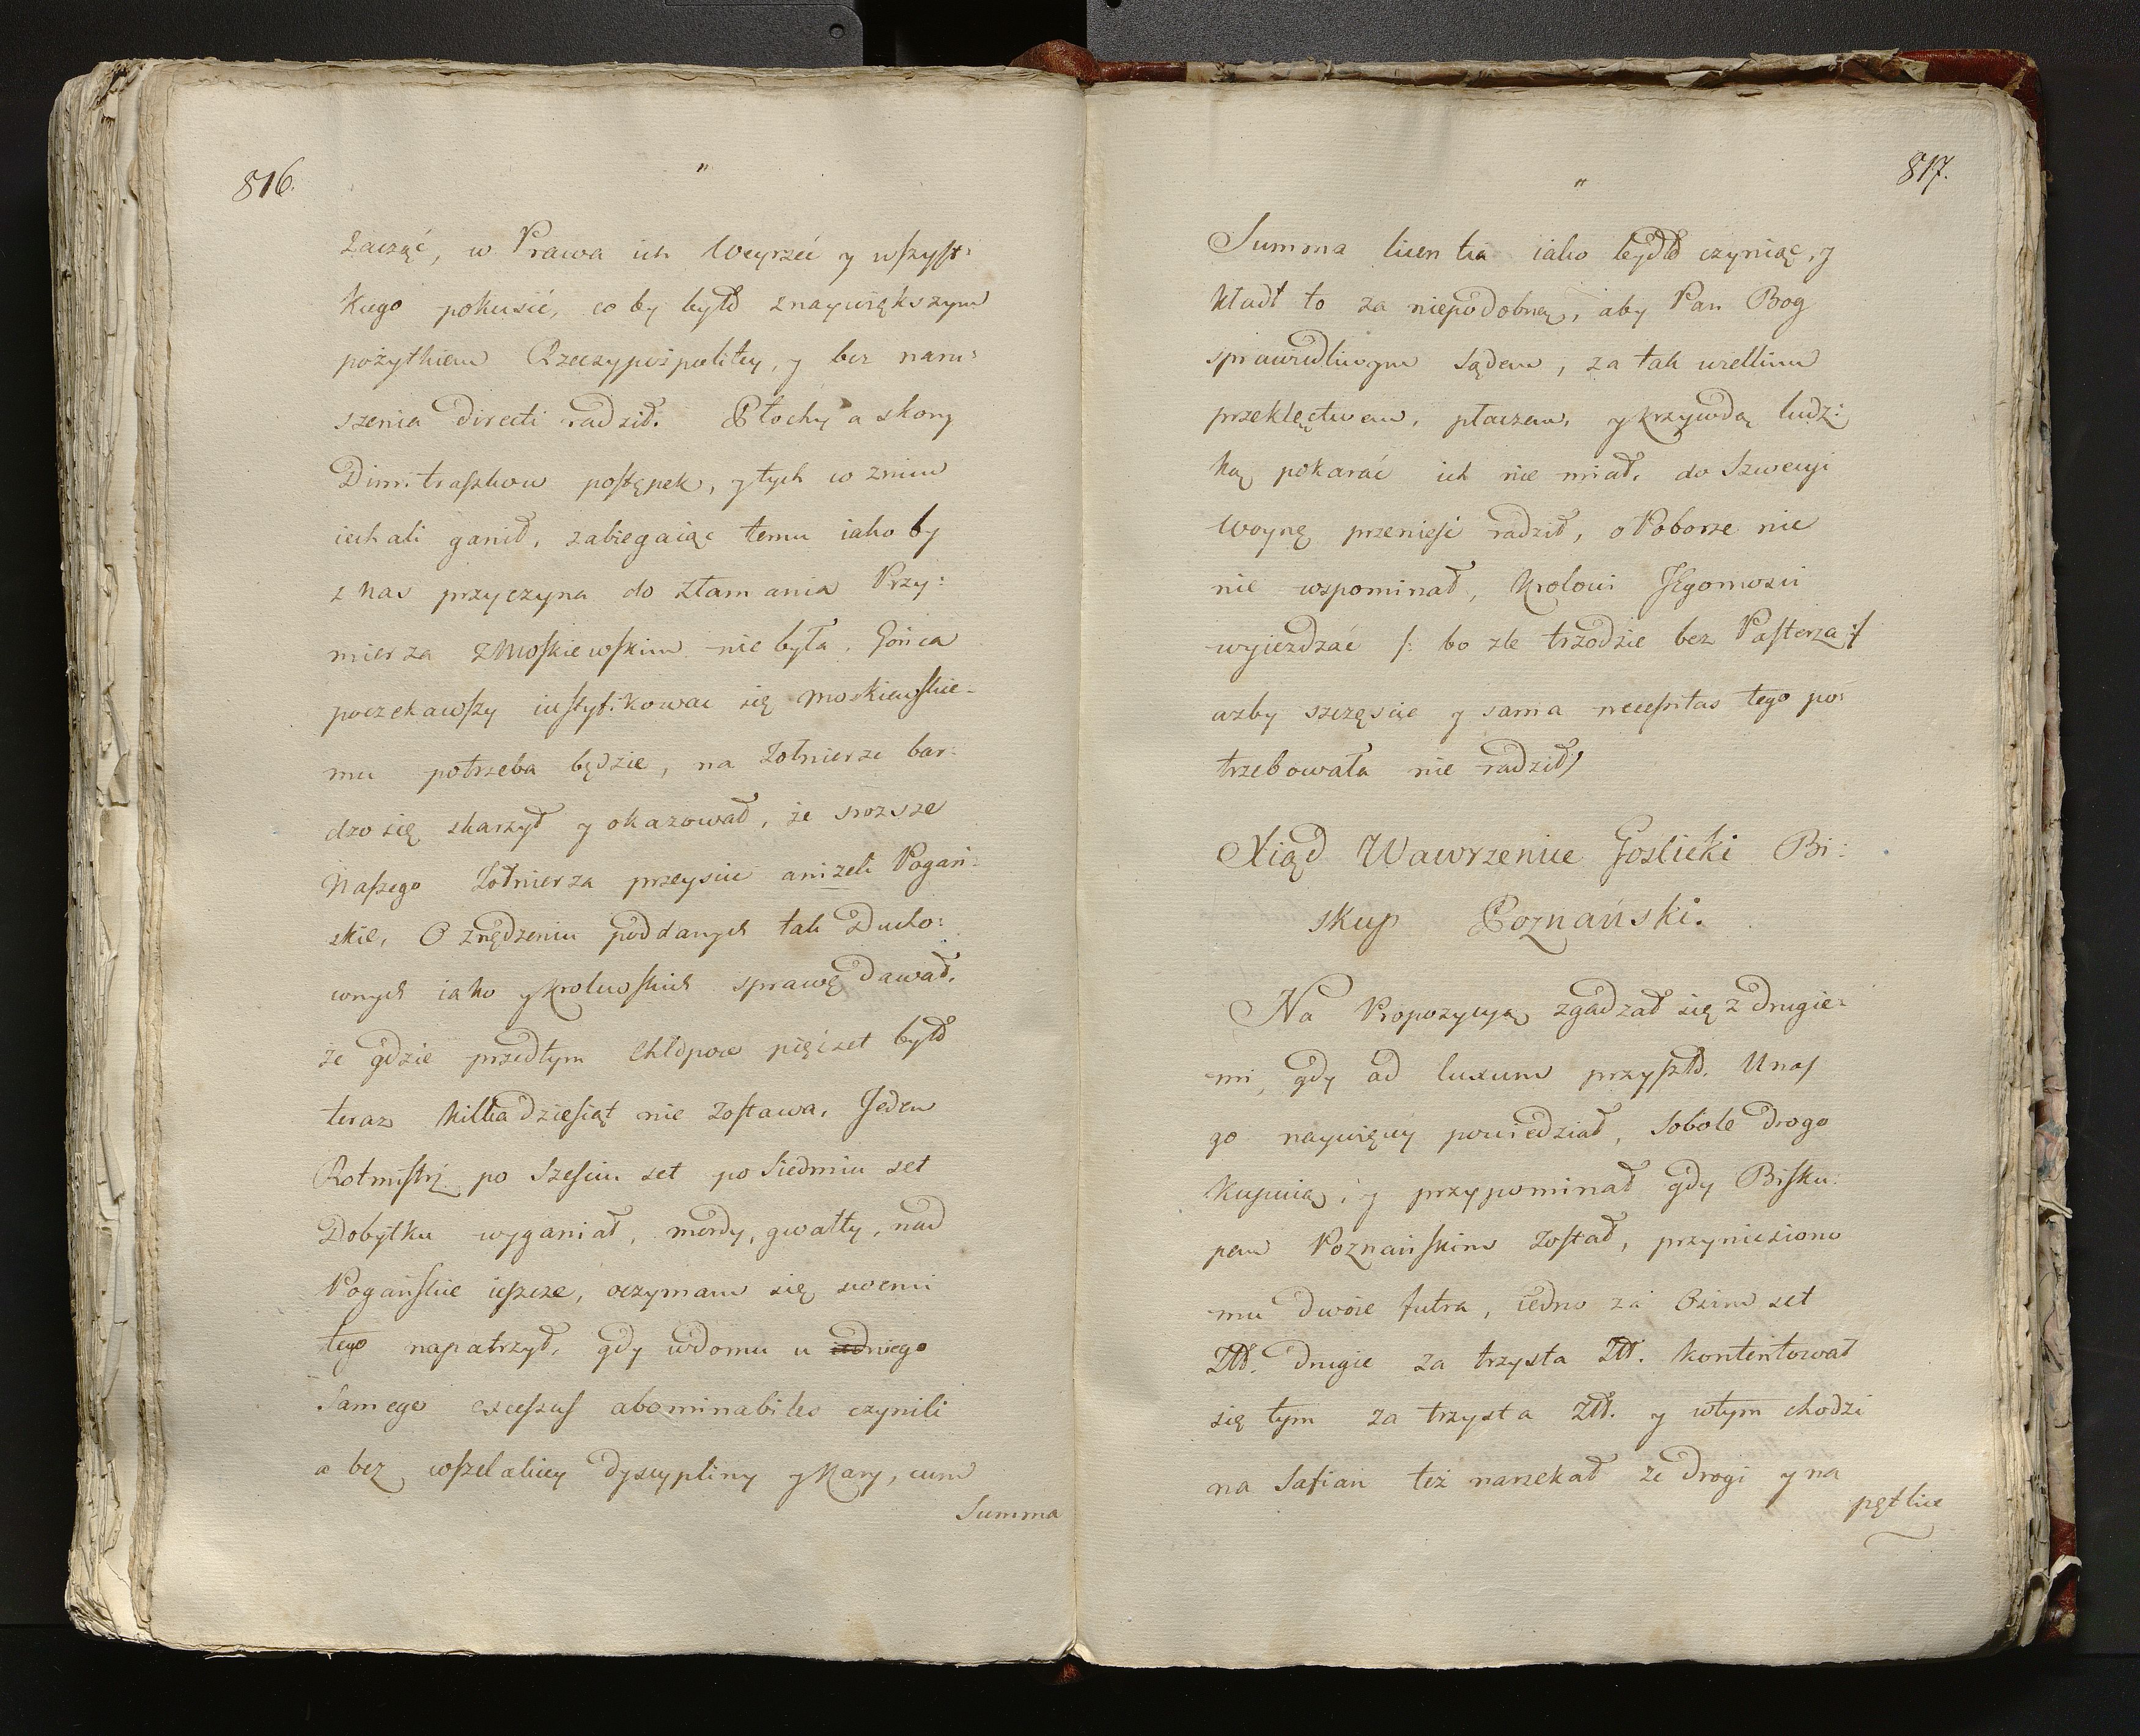 816.
"
Zacząć, w Prawa ich Weyrzeć y wszyst:
kiego pokusić, co by było z naywiększym
pożytkiem Rzeczypospolitey, y bez naru:
szenia directi radził. Płochy a skory
Dimitraszkow postępek, y tych co z nim
iechali ganił, zabiegaiąc temu iako by
z nas przyczyna do złamania Przy:
mierza z Moskiewskim nie była, Gońca
poczekawszy iustyfikować się Moskiewskie-
mu potrzeba będzie, na Żołnierze bar:
dzo się skarzył y okazował, że srozsze
Naszego Żołnierza przeyscie aniżeli Pogań:
skie, O znędzeniu poddanych tak Ducho:
wnych iako y krolewskich sprawę dawał,
że gdzie przedtym Chłopow pięćset było
teraz kilkadziesiąt nie zostawa, Jeden
Rotmistrz po Sześciu set po Siedmiu set
Dobytku wyganiał, mordy, gwałty, nad
Pogańskie ieszcze, oczymam się swemi
tego napatrzył, gdy w domu u iedniego
Samego excessus abominabiles czynili
a bez wszelakiey dyscypliny y kary, cum
Summa
817.
"
Summa licentia iako bydło czyniąc, y
kładł to za niepodobną, aby Pan Bog
sprawiedliwym sądem, za tak wielkim
przeklęctwem, płaczem, y krzywdą ludz:
ką pokarać ich nie miał, do Szwecyi
Woynę przeniesć radził, o Poborze nic
nie wspominał, Krolowi JEgomosci
wyjezdzać /: bo zle trzodzie bez Pasterza :/
azby szczęscie y sama necessitas tego po:
trzebowała nie radził)
Xiąd Wawrzeniec Goslicki Bi:
skup Poznański.
Na Propozycyą zgadzał się z drugie:
mi, gdy ad luxum przyszło. Unas
go naywięcy powiedział, Sobole drogo
kupuią, y przypominał gdy Bisku:
pem Poznańskim został, przyniesiono
mu dwoie futra, iedno za Ośm set
Złł. drugie za trzysta Złł. kontentował
się tym za trzysta Złł. y w tym chodzi
na Safian też narzekał że drogi y na
pętlice